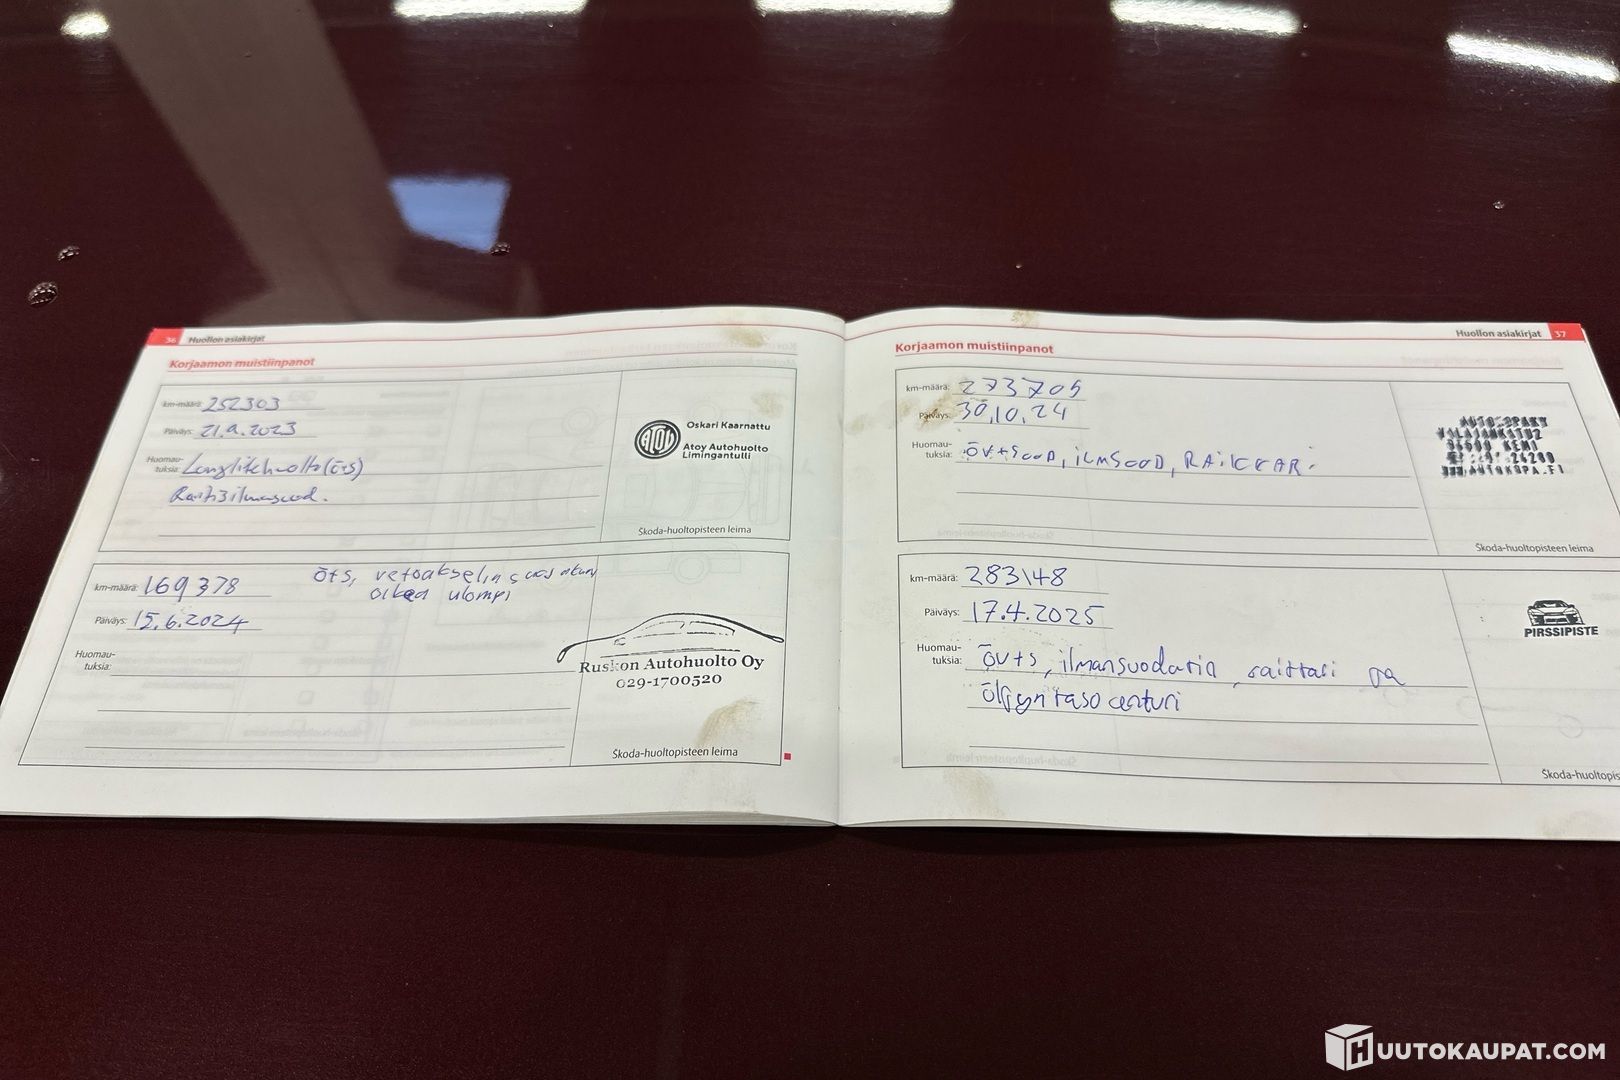 36 Huollon asiakirjat
Korjaamon muistiinpanot
km-määrä: 252303
Päiväys: 21.9.2023
Huomau-
tuksia: Longlifehuolto (öts)
Raitisilmasuod.
Oskari Kaarnattu
ATOY
Atoy Autohuolto
Limingantulli
Škoda-huoltopisteen leima
km-määrä: 169378
öts, vetoakselin
oikea ulompi
Päiväys: 15.6.2024
Huomau-
tuksia:
Ruskon Autohuolto Oy
029-1700520
Škoda-huoltopisteen leima
Huollon asiakirjat 37
Korjaamon muistiinpanot
km-määrä: 273709
Päiväys: 30.10.24
Huomau-
tuksia: öv+suod, ilmsuod, RAikkari.
KEMI
WWW.AUTOKOPA.FI
Škoda-huoltopisteen leima
km-määrä: 283148
Päiväys: 17.4.2025
Huomau-
tuksia: öv+s, ilmansuodatin, raittari ja
öljyn taso anturi
PIRSSIPISTE
Škoda-huoltopis
HUUTOKAUPAT.COM